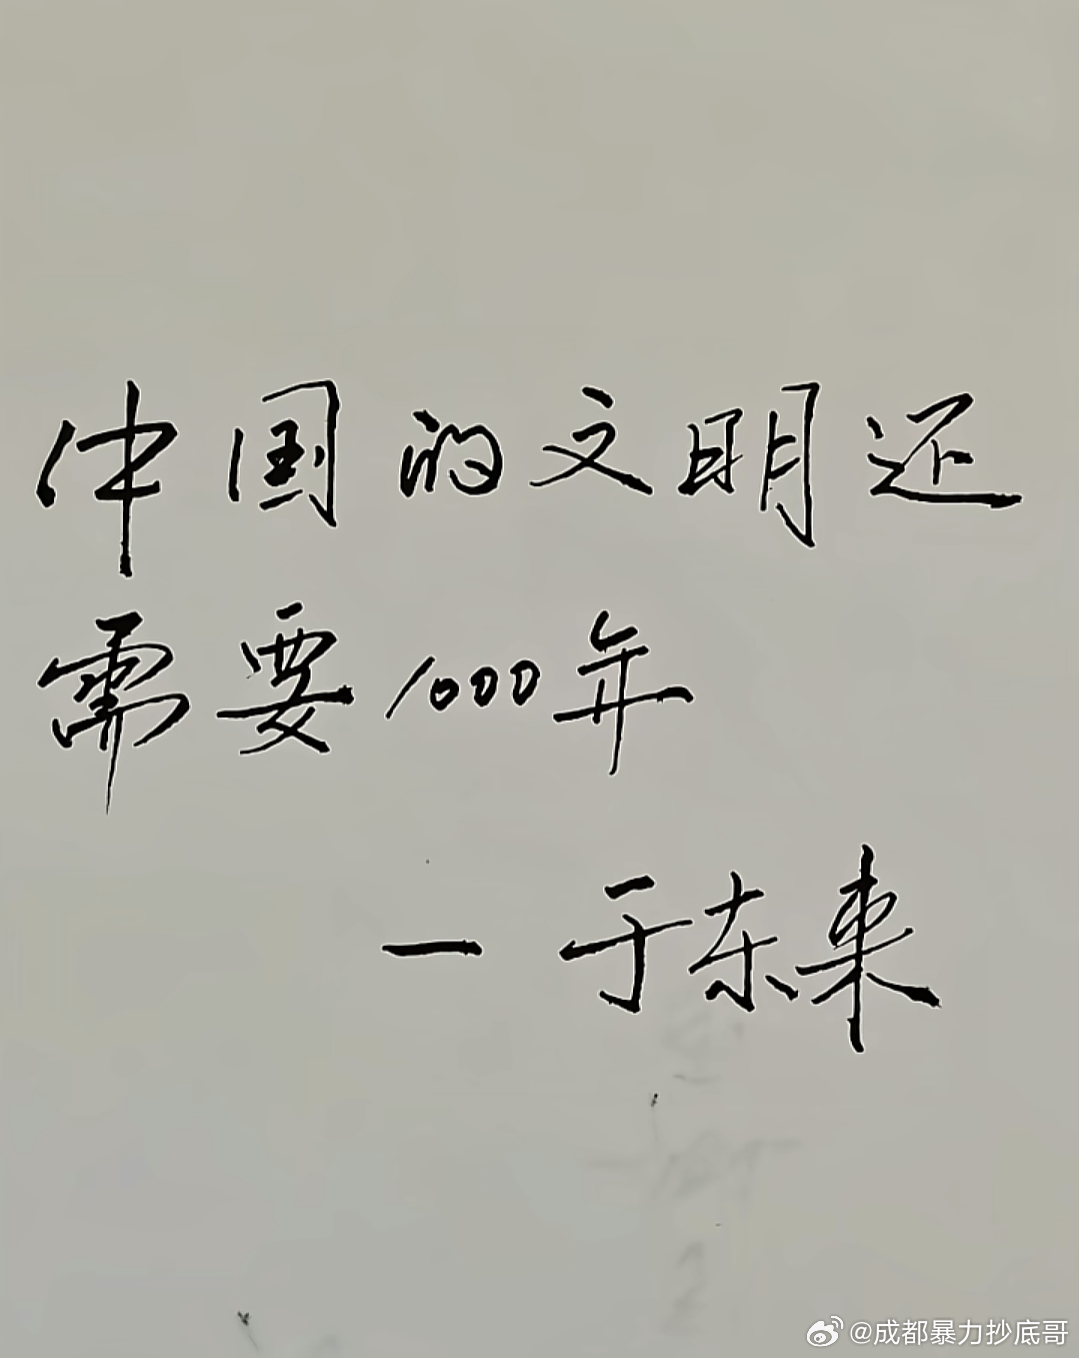 中国的文明还
需要1000年
— 于东来
@成都暴力抄底哥